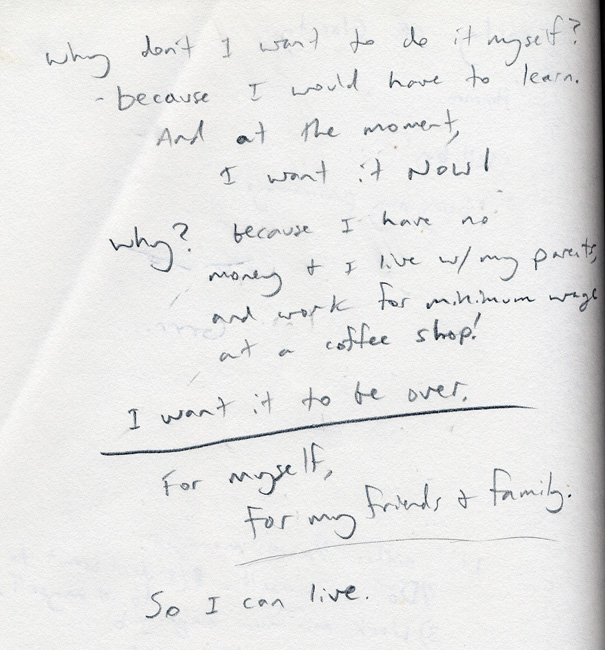 Why don't I want to do it myself?
- because I would have to learn.
And at the moment,
I want it NOW!
Why? because I have no
money & I live w/ my parents,
and work for minimum wage
at a coffee shop!
I want it to be over.
For myself,
For my friends & family.
So I can live.